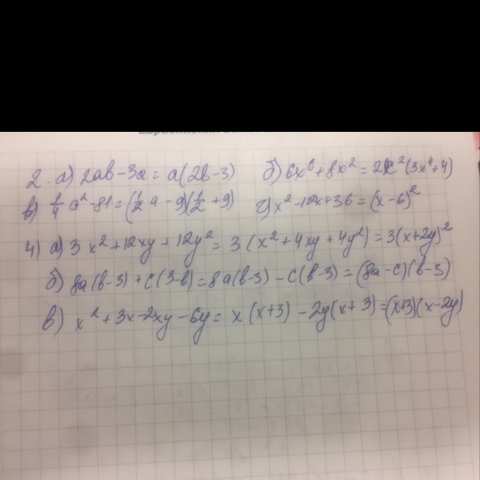 2. а) 2ab-3a = a(2b-3) б) 6x⁶+8x² = 2x²(3x⁴+4)
в) 1/4 a²-81=(1/2 a-9)(1/2+9) г) x²-12x+36=(x-6)²
4) а) 3x²+12xy+12y² = 3(x²+4xy+4y²)=3(x+2y)²
б) 8a(b-3)+c(3-b)=8a(b-3)-c(b-3)=(8a-c)(b-3)
в) x²+3x-2xy-6y= x(x+3)-2y(x+3)=(x+3)(x-2y)